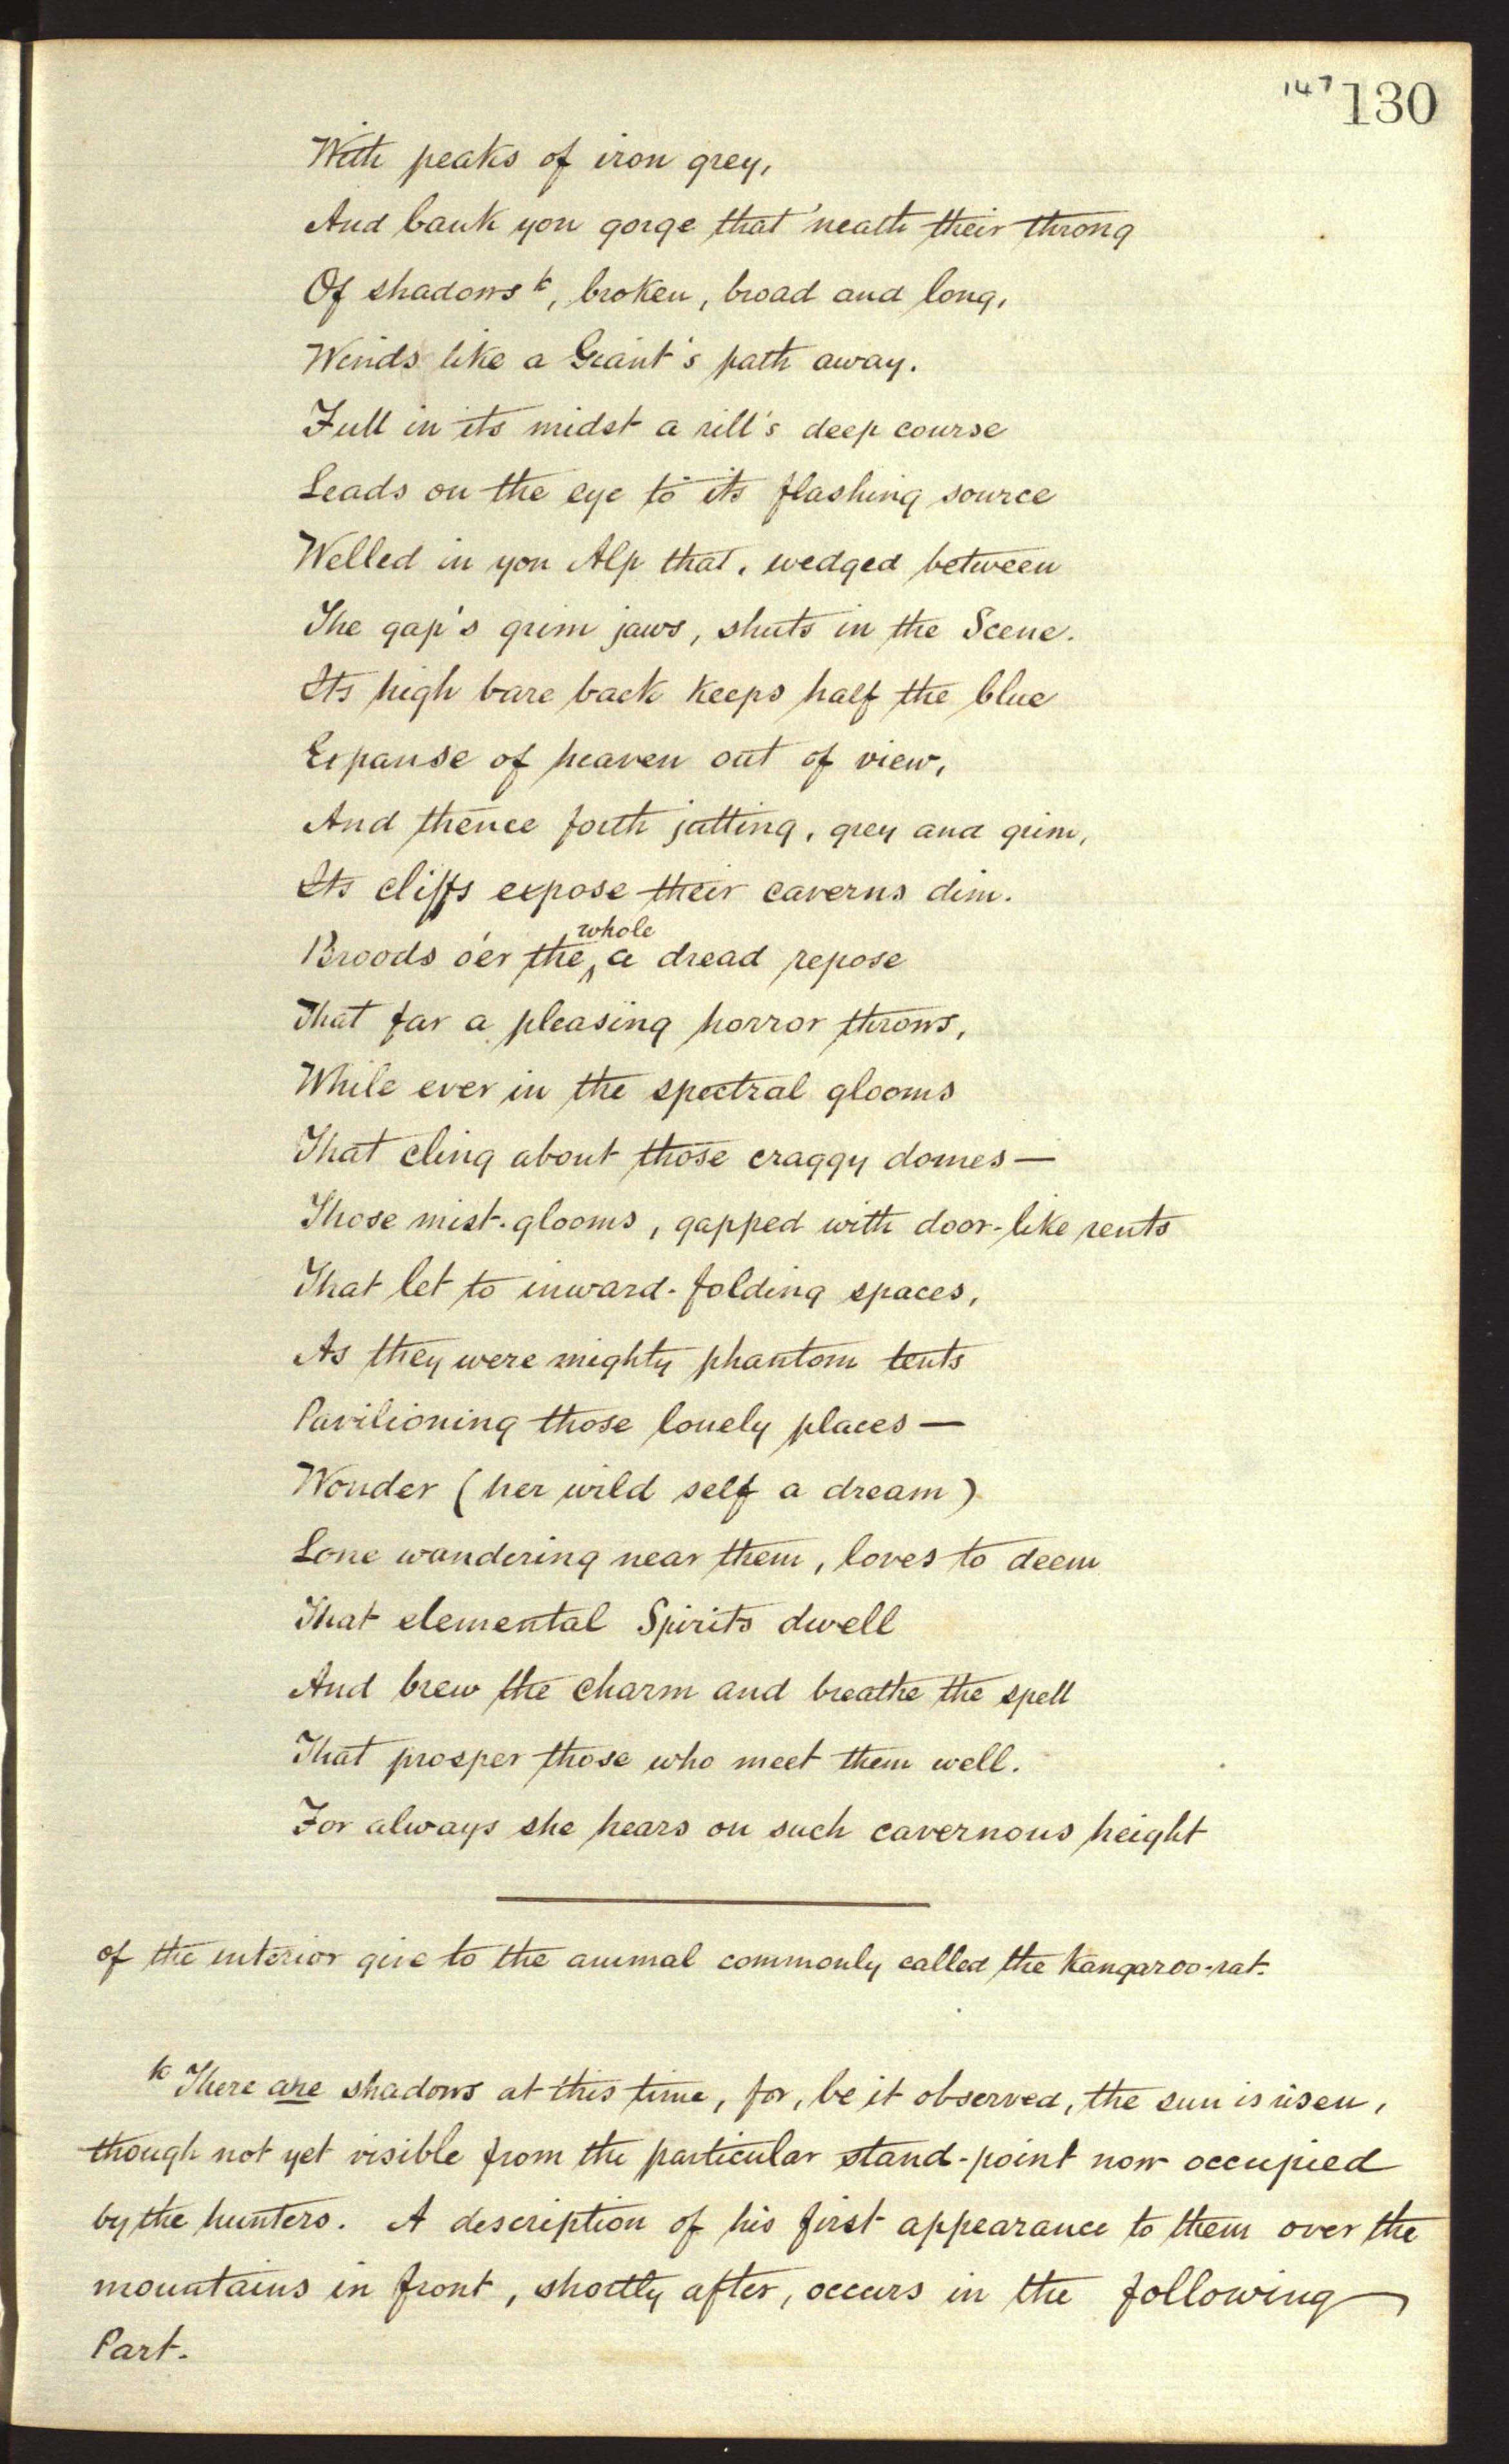 147 130
With peaks of iron grey,
And bank yon gorge that 'neath their throng
Of shadows k, broken, broad and long,
Winds like a Giant's path away.
Full in its midst a rill's deep course
Leads on the eye to its flashing source
Welled in yon Alp that, wedged between
The gap's grim jaws, shuts in the Scene.
Its high bare back keeps half the blue
Expanse of heaven out of view,
And thence forth jutting, grey and grim,
Its cliffs expose their caverns dim.
Broods o'er the whole a dread repose
That far a pleasing horror throws,
While ever in the spectral glooms
That cling about those craggy domes —
Those mist-glooms, gapped with door-like rents
That let to inward-folding spaces,
As they were mighty phantom tents
Pavilioning those lonely places —
Wonder (her wild self a dream)
Lone wandering near them, loves to deem
That elemental Spirits dwell
And brew the charm and breathe the spell
That prosper those who meet them well.
For always she hears on such cavernous height
of the interior give to the animal commonly called the Kangaroo-rat.
k There are shadows at this time, for, be it observed, the sun is risen,
though not yet visible from the particular stand-point now occupied
by the hunters. A description of his first appearance to them over the
mountains in front, shortly after, occurs in the following
Part.